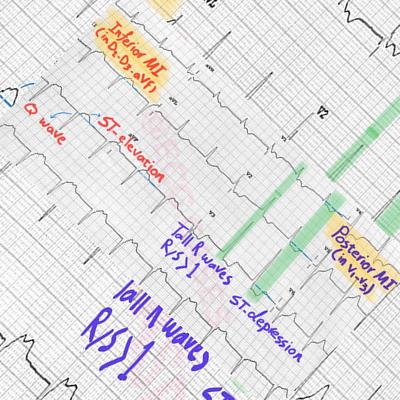 Inferior MI
(in D2-D3-aVF)
Q wave
ST-elevation
V2
Tall R waves
R/S>1
ST-depression
Posterior MI
(in V1-V3)
Tall R waves
R/S>1
ST